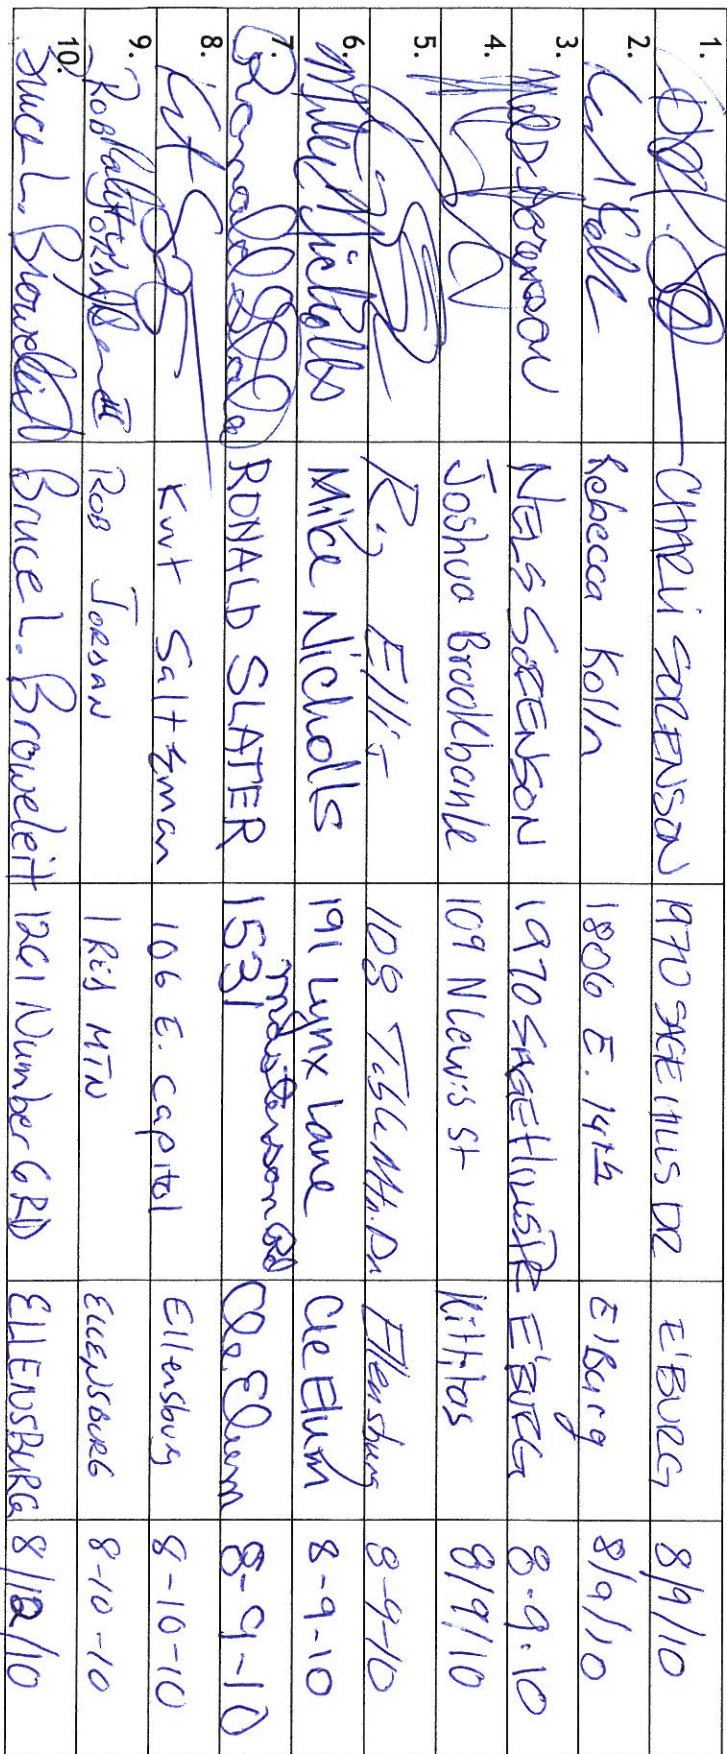 1. CHARLI SORENSON 1970 SAGE HILLS DR E'BURG 8/9/10
2. Rebecca Kolln 1806 E. 14th E'Burg 8/9/10
3. NELS SORENSON 1970 SAGE HILLS DR E'BURG 8-9-10
4. Joshua Brookbank 109 N Lewis St Kittitas 8/9/10
5. Ellis 108 Mtn. Dr Ellensburg 8-9-10
6. Mike Nicholls Mike Nicholls 191 Lynx Lane Cle Elum 8-9-10
7. Ronald Slater RONALD SLATER 1531 Masterson Rd Cle Elum 8-9-10
8. Kurt Saltzman 106 E. Capitol Ellensburg 8-10-10
9. ROB JORDAN 1 MTN ELLENSBURG 8-10-10
10. Bruce L. Broweleit Bruce L. Broweleit 1261 Number 6 RD EllENSBURG 8/12/10